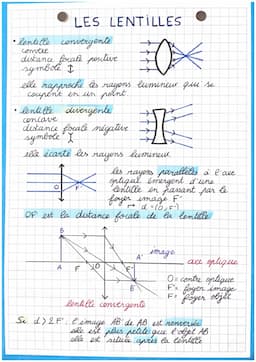 LES LENTILLES
• lentille convergente
convexe
distance focale positive
symbole ↕
elle rapproche les rayons lumineux qui se
coupent en un point.
• lentille divergente
concave
distance focale négative
symbole
elle écarte les rayons lumineux
les rayons parallèles à l'axe
optique émergent d'une
lentille en passant par le
foyer image F'
O F'
OF' est la distance focale de la lentille
B
image
A F O F' A'
axe optique
B'
O = centre optique
F' = foyer image
F = foyer objet
lentille convergente
Si d > 2F' l'image A'B' de AB est renversée
elle est plus petite que l'objet AB
elle est située après la lentille